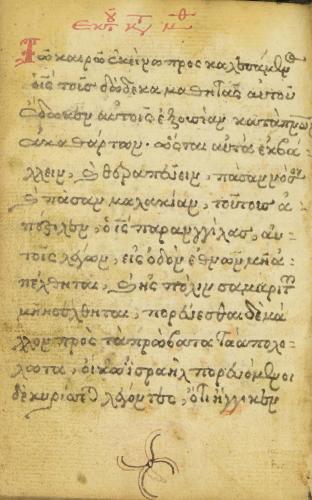 ἐκ τοῦ κατὰ Μθ
Τῶ καιρῶ ἐκείνω προσκαλεσάμενος
ὁ ις τοῖς δώδεκα μαθητὰς αὐτοῦ
ἔδωκεν αὐτοῖς ἐξουσίαν κατὰ πνων
ἀκαθάρτων· ὥσται αὐτὰ ἐκβά-
λλειν, καὶ θεραπεύειν, πᾶσαν νόσον
καὶ πᾶσαν μαλακίαν, τούτους ἀ-
πέστειλεν, ὁ ις παραγγείλας, αὐ-
τοῖς λέγων, εἰς ὁδὸν ἐθνῶν μὴ ἀ-
πέλθηται, καὶ εἰς πόλιν σαμαριτῶν
μὴ εἰσέλθηται, πορεύεσθαι δὲ μᾶ
λλον πρὸς τὰ πρόβατα τὰ ἀπολο-
λότα, οἴκου ισραὴλ πορευόμενοι
δὲ κυρίσεται λέγοντες, ὅτι ἤγγικεν